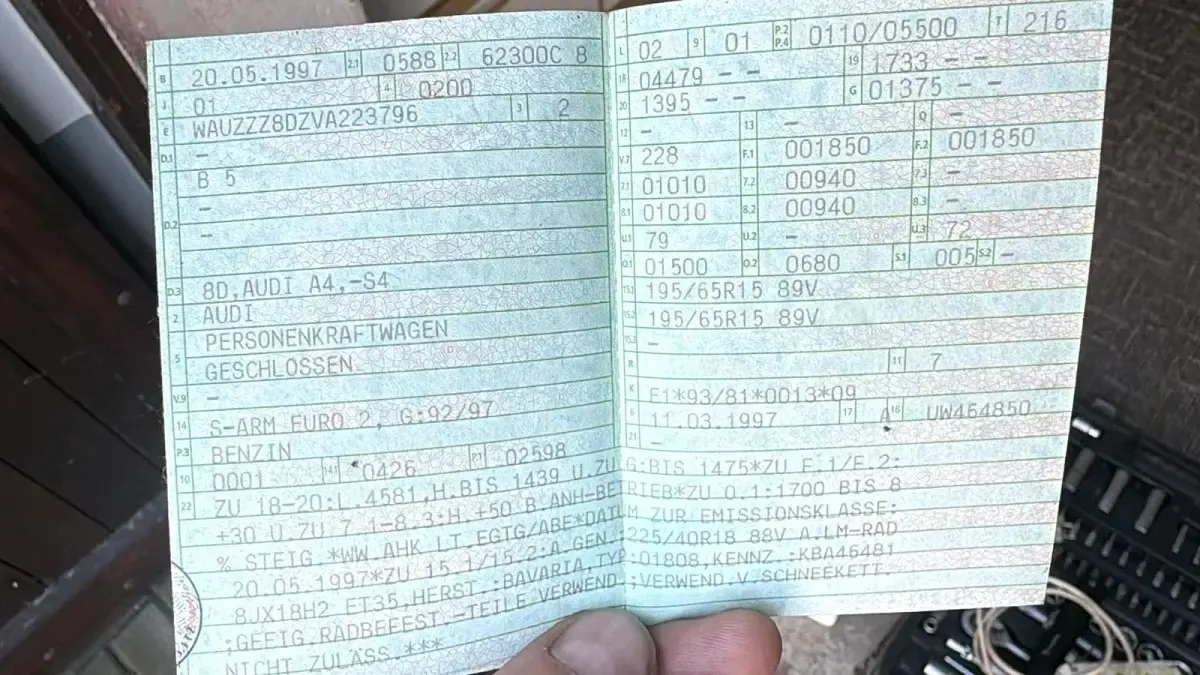 B 20.05.1997 2.1 0588 2.2 62300C 8
J 01 4 0200
E WAUZZZ8DZVA223796 3 2
D.1 –
B 5
D.2 –
–
D.3 8D,AUDI A4,-S4
2 AUDI
5 PERSONENKRAFTWAGEN
GESCHLOSSEN
V.9 –
14 S-ARM EURO 2, G:92/97
P.3 BENZIN
10 0001 14.1 0426 P.1 02598
L 02 9 01 P.2 P.4 0110/05500 T 216
18 04479 – – 19 1733 – –
20 1395 – – G 01375 – –
12 – 13 – Q –
V.7 228 F.1 001850 F.2 001850
7.1 01010 7.2 00940 7.3 –
8.1 01010 8.2 00940 8.3 –
U.1 79 U.2 – U.3 72
O.1 01500 O.2 0680 S.1 005 S.2 –
15.1 195/65R15 89V
15.2 195/65R15 89V
15.3 –
R 11 7
K E1*93/81*0013*09
6 11.03.1997 17 A 16 UW464850
21 –
22 ZU 18-20:L.4581,H.BIS 1439 U.ZU G:BIS 1475*ZU F.1/F.2:
+30 U.ZU 7.1-8.3:H.+50 B.ANH-BETRIEB*ZU O.1:1700 BIS 8
% STEIG.*WW.AHK LT.EGTG/ABE*DATUM ZUR EMISSIONSKLASSE:
20.05.1997*ZU 15.1/15.2:A.GEN.225/40R18 88V A.LM-RAD
8JX18H2 ET35,HERST.:BAVARIA,TYP:01808,KENNZ.:KBA46481
;GEEIG.RADBEFEST.-TEILE VERWEND.;VERWEND.V.SCHNEEKETT.
NICHT ZULÄSS.***